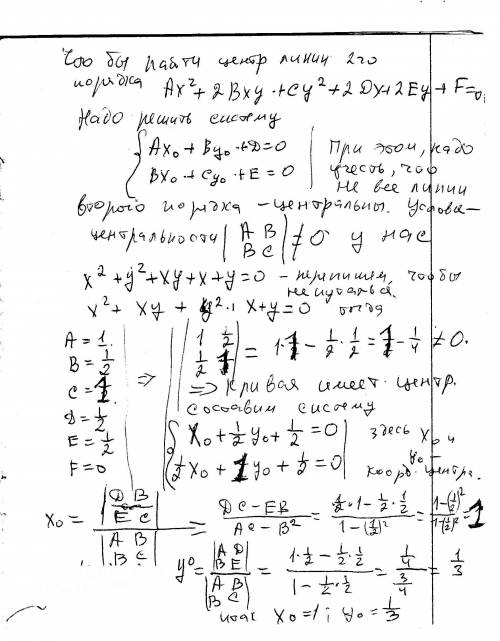 Что бы найти центр линии 2го
порядка Ax² + 2Bxy + Cy² + 2Dx + 2Ey + F = 0;
Надо решить систему
{ Ax₀ + By₀ + D = 0 | При этом, надо
Bx₀ + Cy₀ + E = 0 | учесть, что
не все линии
второго порядка – центральны. Услови–
центральности | A B / B C | ≠ 0 у нас
x² + y² + xy + x + y = 0 – перепишем, чтобы
не путаться.
x² + xy + y² + x + y = 0 тогда
A = 1
B = 1/2
C = 1
D = 1/2
E = 1/2
F = 0
=> | 1 1/2 / 1/2 1 | = 1·1 – 1/2·1/2 = 1 – 1/4 ≠ 0.
=> Кривая имеет центр.
составим систему
{ x₀ + 1/2 y₀ + 1/2 = 0 | здесь x₀ и
1/2 x₀ + 1 y₀ + 1/2 = 0 | y₀ –
коорд. центра.
x₀ = | D B / E C | / | A B / B C | = (DC – EB) / (AC – B²) = (1/2·1 – 1/2·1/2) / (1 – (1/2)²) = (1 – (1/2)²) / (1 – (1/2)²) = 1
y₀ = | A D / B E | / | A B / B C | = (1·1/2 – 1/2·1/2) / (1 – 1/2·1/2) = (1/4) / (3/4) = 1/3
x₀ = 1; y₀ = 1/3